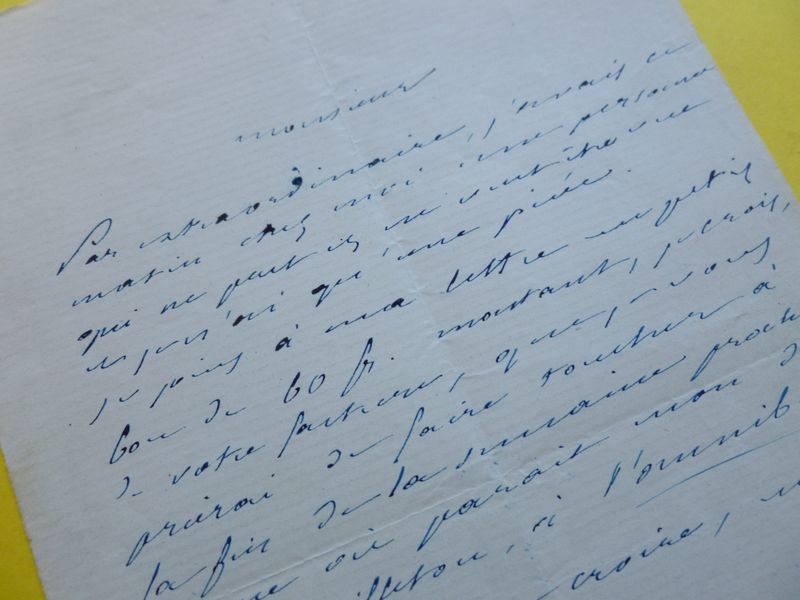 monsieur
Par extraordinaire, j'avais ce
matin chez moi une personne
qui ne part et ne veut être vue
et je n'ai qu'une pièce.
je joins à ma lettre un petit
bon de 60 fr. montant, je crois,
de votre facture, que je vous
prierai de faire toucher à
la fin de la semaine
où paraît mon
à l'omnib
croire,